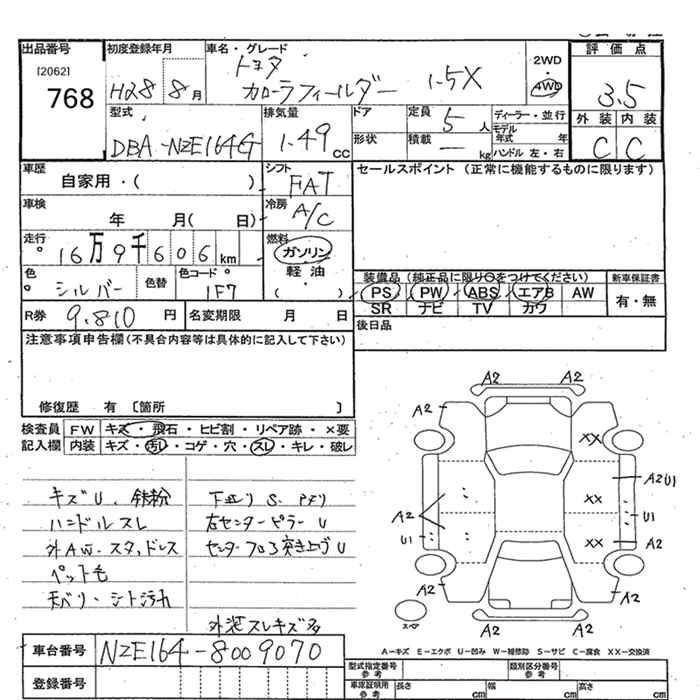 出品番号 初度登録年月 車名・グレード 評価点
[2062] トヨタ 2WD
768 H28 8月 カローラフィールダー 1.5X 4WD 3.5
型式 排気量 ドア 定員 5人 ディーラー・並行 外装 内装
DBA-NZE164G 1.49cc 形状 積載 ー kg モデル年式 年 ハンドル 左・右 C C
車歴 シフト セールスポイント (正常に機能するものに限ります)
自家用・( ) FAT
車検 冷房
年 月( 日) A/C
走行 燃料
16万9千606km ガソリン
色 色替 色コード 軽油 装備品 (純正品に限り○をつけてください) 新車保証書
シルバー 1F7 ・( ) PS PW ABS エアB AW 有・無
SR ナビ TV カワ
R券 9.810円 名変期限 月 日 後日品
注意事項申告欄(不具合内容等は具体的に記入して下さい)
修復歴 有 〔箇所 〕
検査員 FW キズ・飛石・ヒビ割・リペア跡・×要
記入欄 内装 キズ・汚レ・コゲ・穴・スレ・キレ・破レ
キズU、鉄粉
ハンドルスレ
外AW.スタッドレス
ペット毛
天バリ・シート汚れ
下廻りS.
右センターピラーU
センターフロア突き上ゲU
外装スレキズ多
A2 A2
A2
XX
A2U1
XX
A2 U1
U1
XX A2
A2 A2
スペア
A2 A2
A-キズ E-エクボ U-凹み W-補修跡 S-サビ C-腐食 XX-交換済
車台番号 NZE164-8009070
登録番号
型式指定番号 参考 類別区分番号 参考
車庫証明用 参考 長さ cm 幅 cm 高さ cm